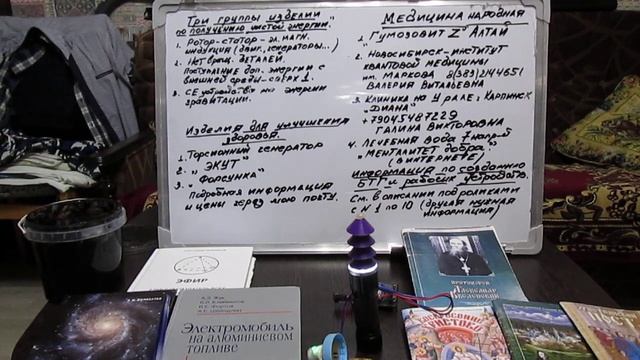 Три группы изделий
по получению чистой энергии.
1. Ротор-статор-эл. магн.
индукция (двиг., генераторы...)
2. Нет вращ. деталей.
Поступление доп. энергии с
внешней среды-сверх 1.
3. СЕ устройства на энергии
гравитации.
Изделия для улучшения
здоровья.
1. Торсионный генератор
2. "ЭКУТ"
3. "Форсунка"
Подробная информация
и цены через мою почту.
Медицина народная
1. Гумозовит Z "Алтай"
2. Новосибирск-институт
квантовой медицины
им. Маркова 8(383)2144651
Валерия Витальевна
3. Клиника на Урале: Карпинск
"Диана"
+79045487229
Галина Викторовна
4. Лечебная вода
"Менталитет добра"
(в интернете)
Информация по созданию
БТГ и рабочих устройств.
См. в описании под роликами
с №1 по 10 (другая нужная
информация)
ЭФИР
Электромобиль
на алюминиевом
топливе
ПРОТОИЕРЕЙ
Александр